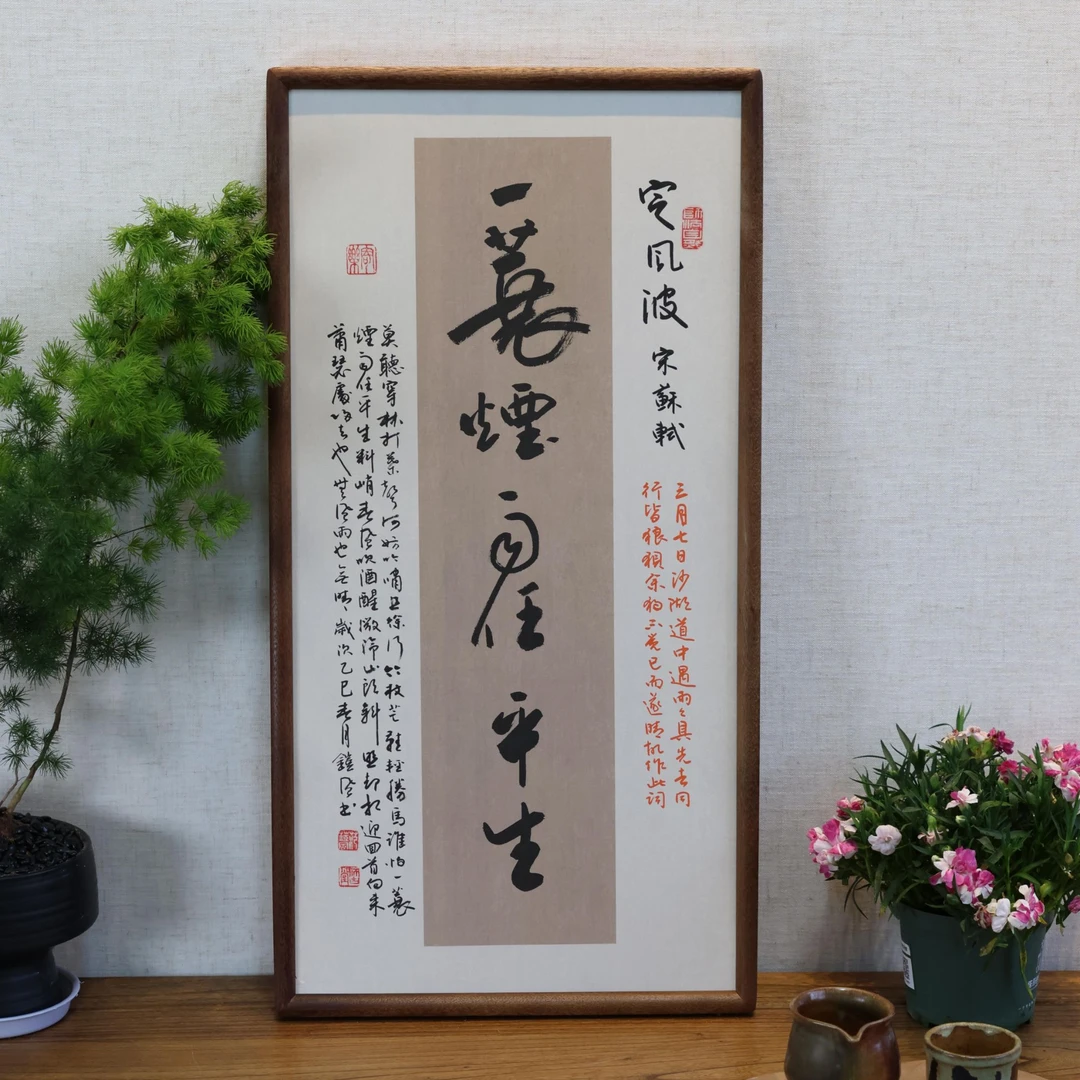 定風波 宋 蘇軾
三月七日沙湖道中遇雨々具先去同
行皆狼狽余獨不覺已而遂晴故作此詞
一蓑煙雨任平生
莫聽穿林打葉聲何妨吟嘯且徐行竹杖芒鞋輕勝馬誰怕一蓑
煙雨任平生料峭春風吹酒醒微冷山頭斜照却相迎回首向來
蕭瑟處歸去也無風雨也無晴歲次乙巳春月書